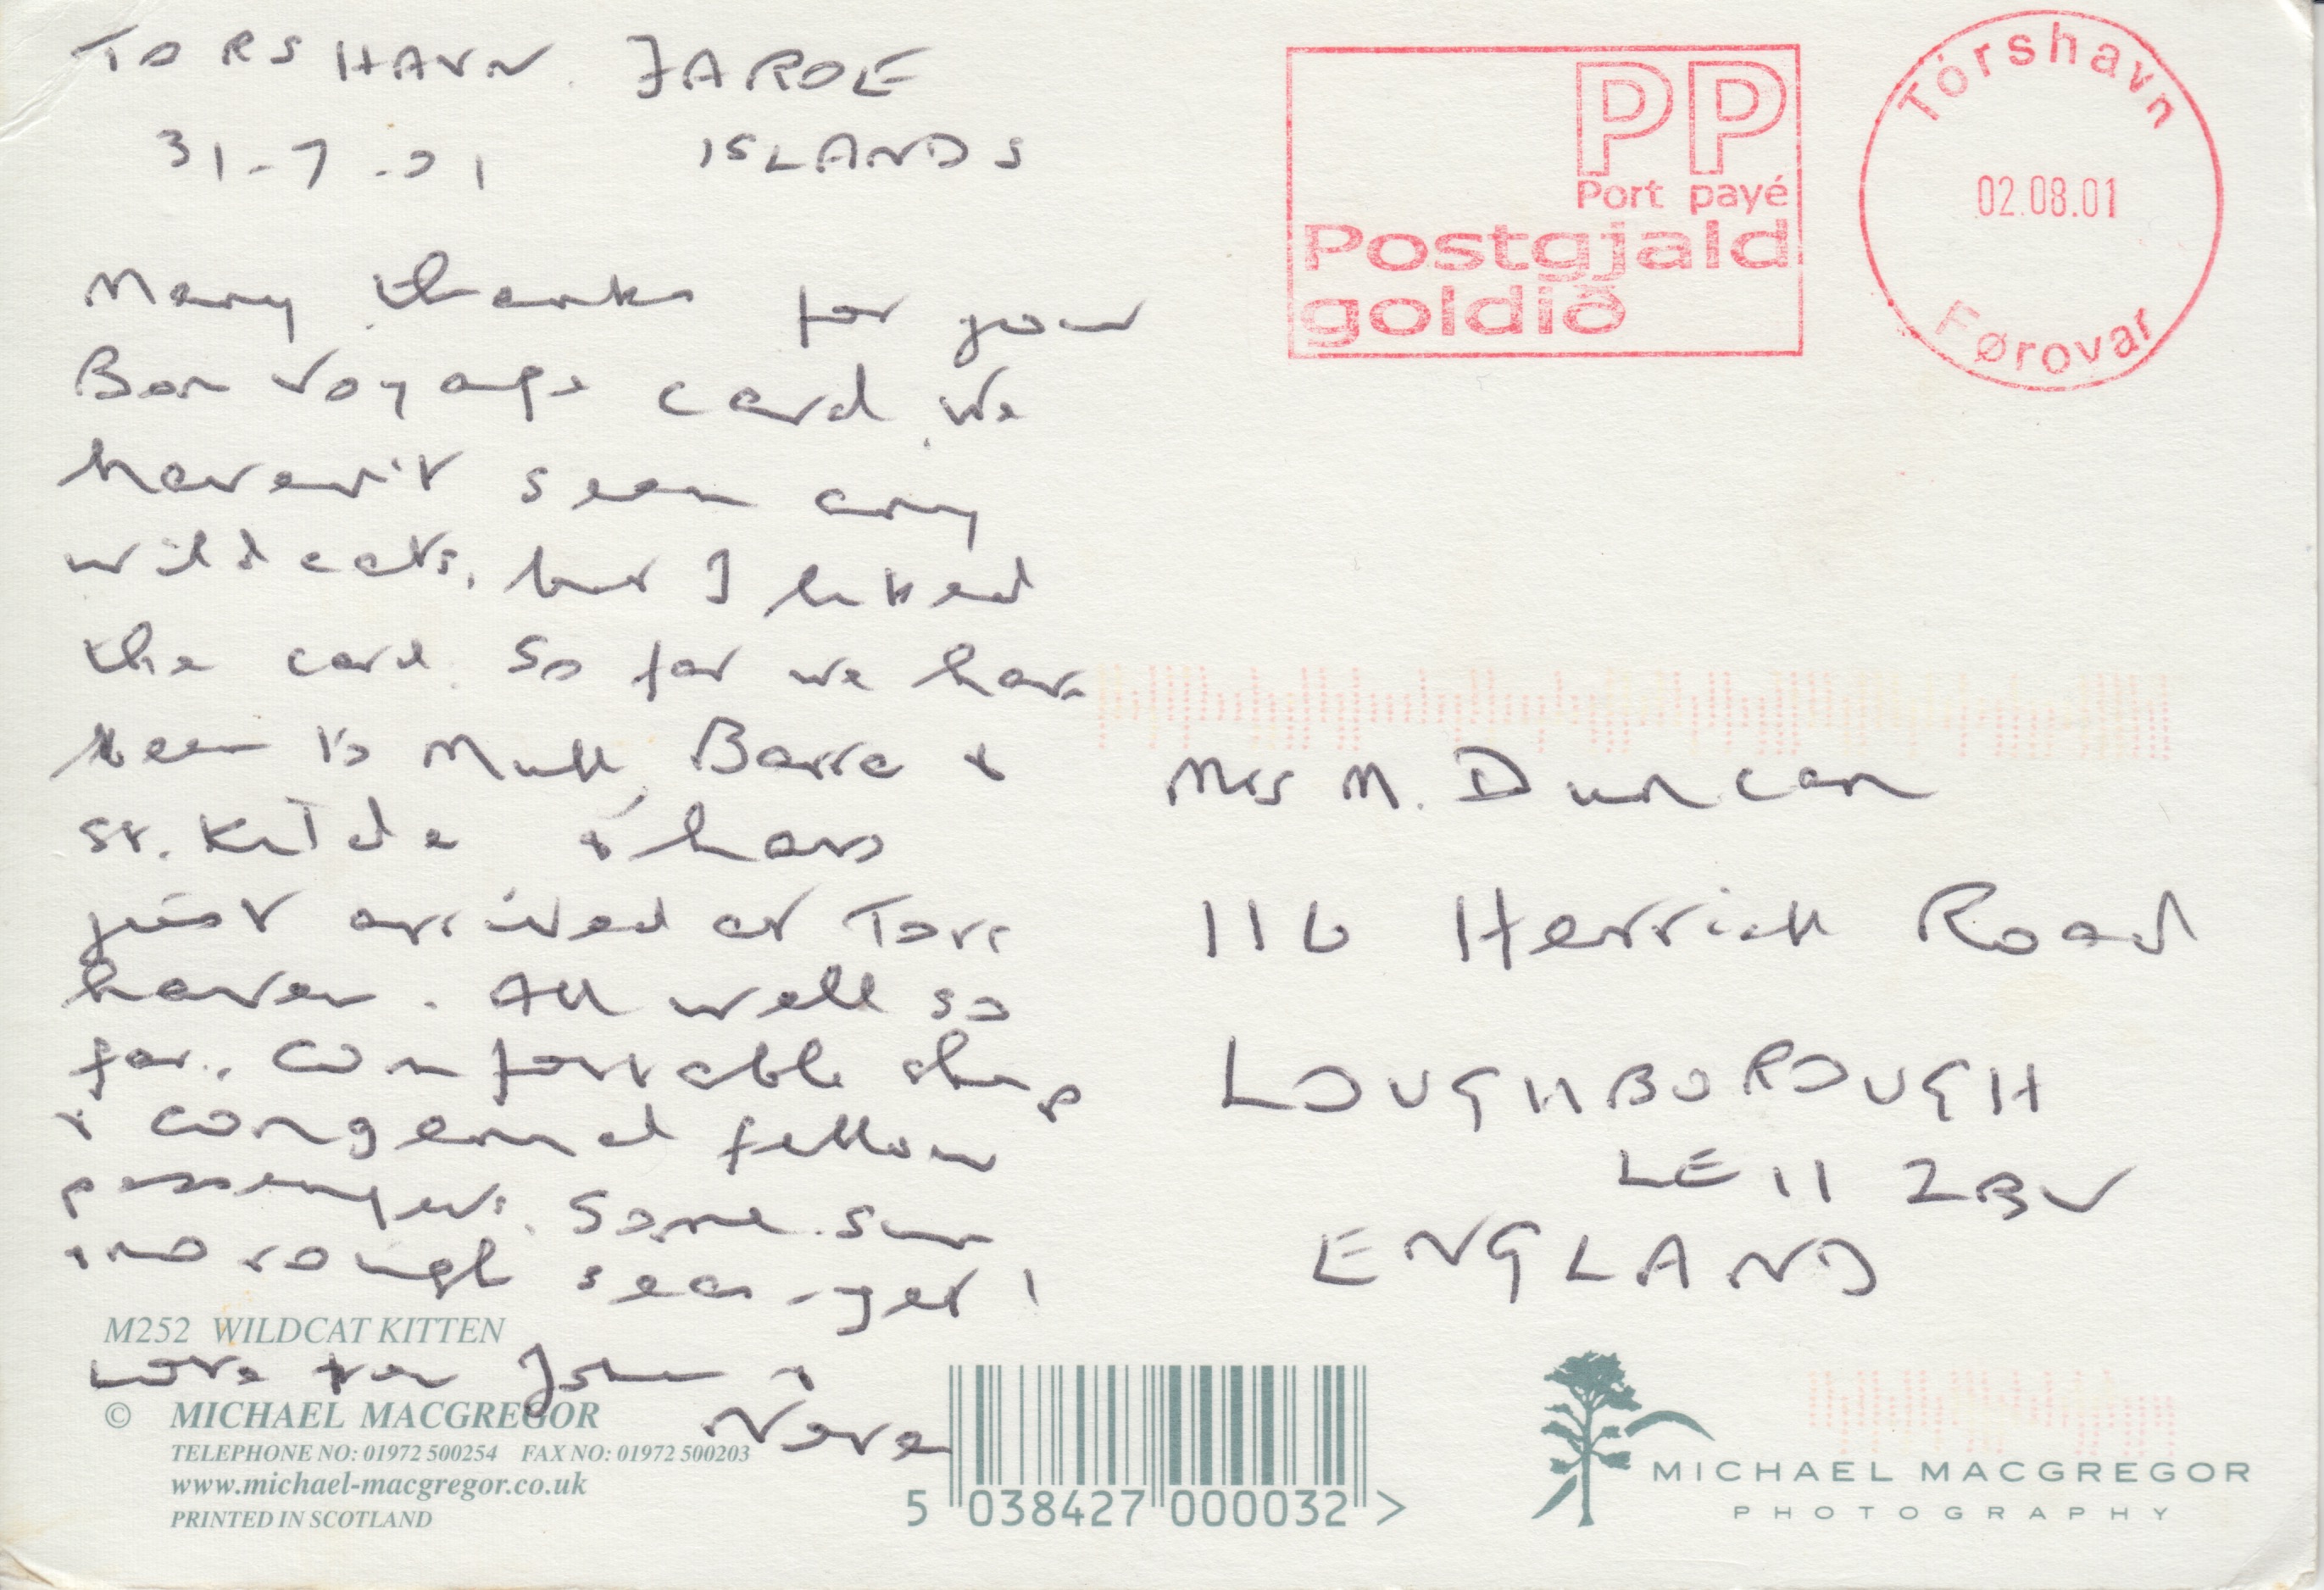 TORSHAVN. FAROE
31-7-01 ISLANDS
Many thanks for your
Bon Voyage card. We
haven't seen any
wild cats, but I liked
the card. So far we have
been to Mull, Barra +
St. Kilda & have
just arrived at Tors
haven. All well so
far. Comfortable ship
+ congenial fellow
passengers. Some sun
+ no rough seas - yet!
Love from John +
Neve
PP
Port payé
Postgjald
goldið
Tórshavn
02.08.01
Førovar
Mrs M. Duncan
116 Herrick Road
LOUGHBOROUGH
LE11 2BU
ENGLAND
M252 WILDCAT KITTEN
© MICHAEL MACGREGOR
TELEPHONE NO: 01972 500254 FAX NO: 01972 500203
www.michael-macgregor.co.uk
PRINTED IN SCOTLAND
5 038427 000032 >
MICHAEL MACGREGOR
PHOTOGRAPHY